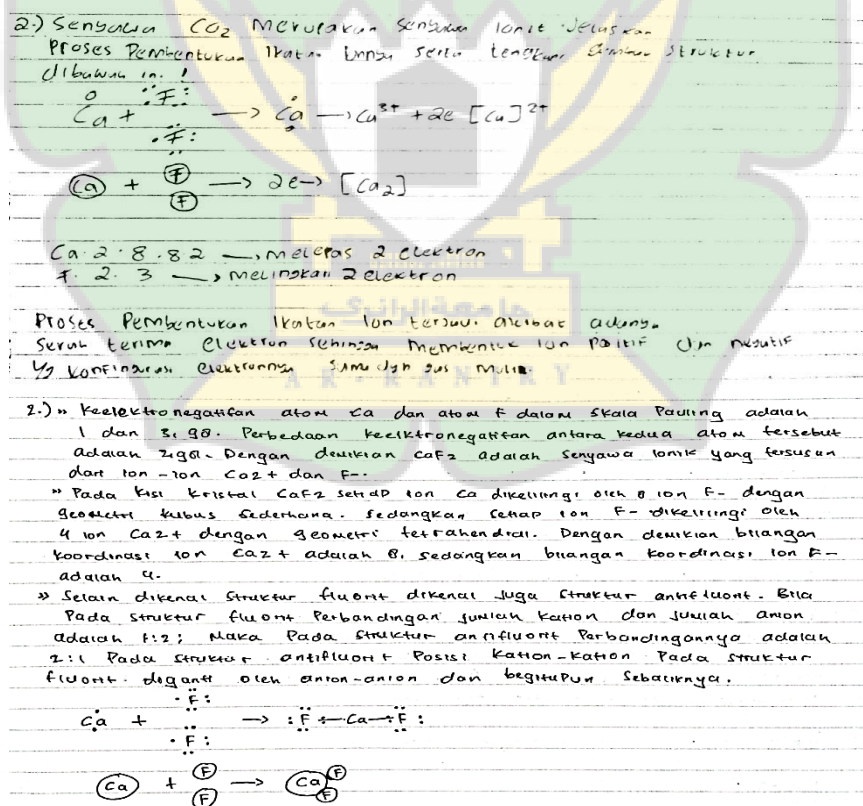 2.) Senyawa CO2 Merupakan Senyawa Ionik Jelaskan
Proses Pembentukan Ikatan serta lengkapi Struktur
dibawah ini !
Ca + :F: → Ca → Ca2+ + 2e [Ca]2+
·F:
Ca + F → 2e → [Ca2]
F
Ca 2 . 8 . 8 2 → melepas 2 elektron
F. 2. 3 → melingkari 2 elektron
Proses Pembentukan Ikatan Ion terjadi akibat adanya
serah terima elektron sehingga membentuk Ion Positif dan negatif
yg konfingurasi elektronnya sama dgn gas mulia.
جامعة الرانري
AR-RANIRY
2.) » Keelektronegatifan atom Ca dan atom F dalam Skala Pauling adalah
1 dan 3,98. Perbedaan keelktronegatifan antara kedua atom tersebut
adalah 2,98. Dengan demikian CaF2 adalah senyawa Ionik yang tersusun
dari Ion-Ion Ca2+ dan F-.
» Pada kisi Kristal CaF2 setiap Ion Ca dikelilingi oleh 8 Ion F- dengan
geometri kubus sederhana. sedangkan setiap Ion F- dikelilingi oleh
4 Ion Ca2+ dengan geometri tetrahendral. Dengan demikian bilangan
koordinasi Ion Ca2+ adalah 8, sedangkan bilangan koordinasi Ion F-
adalah 4.
» Selain dikenal Struktur fluorit dikenal juga Struktur antifluorit. Bila
Pada struktur fluorit Perbandingan jumlah kation dan jumlah anion
adalah 1:2; Maka Pada Struktur antifluorit Perbandingannya adalah
2:1 Pada struktur antifluorit Posisi Kation-Kation Pada struktur
fluorit diganti oleh anion-anion dan begitupun Sebaliknya.
·F:
Ca + → :F ← Ca → F:
·F:
Ca + F → Ca F
F F